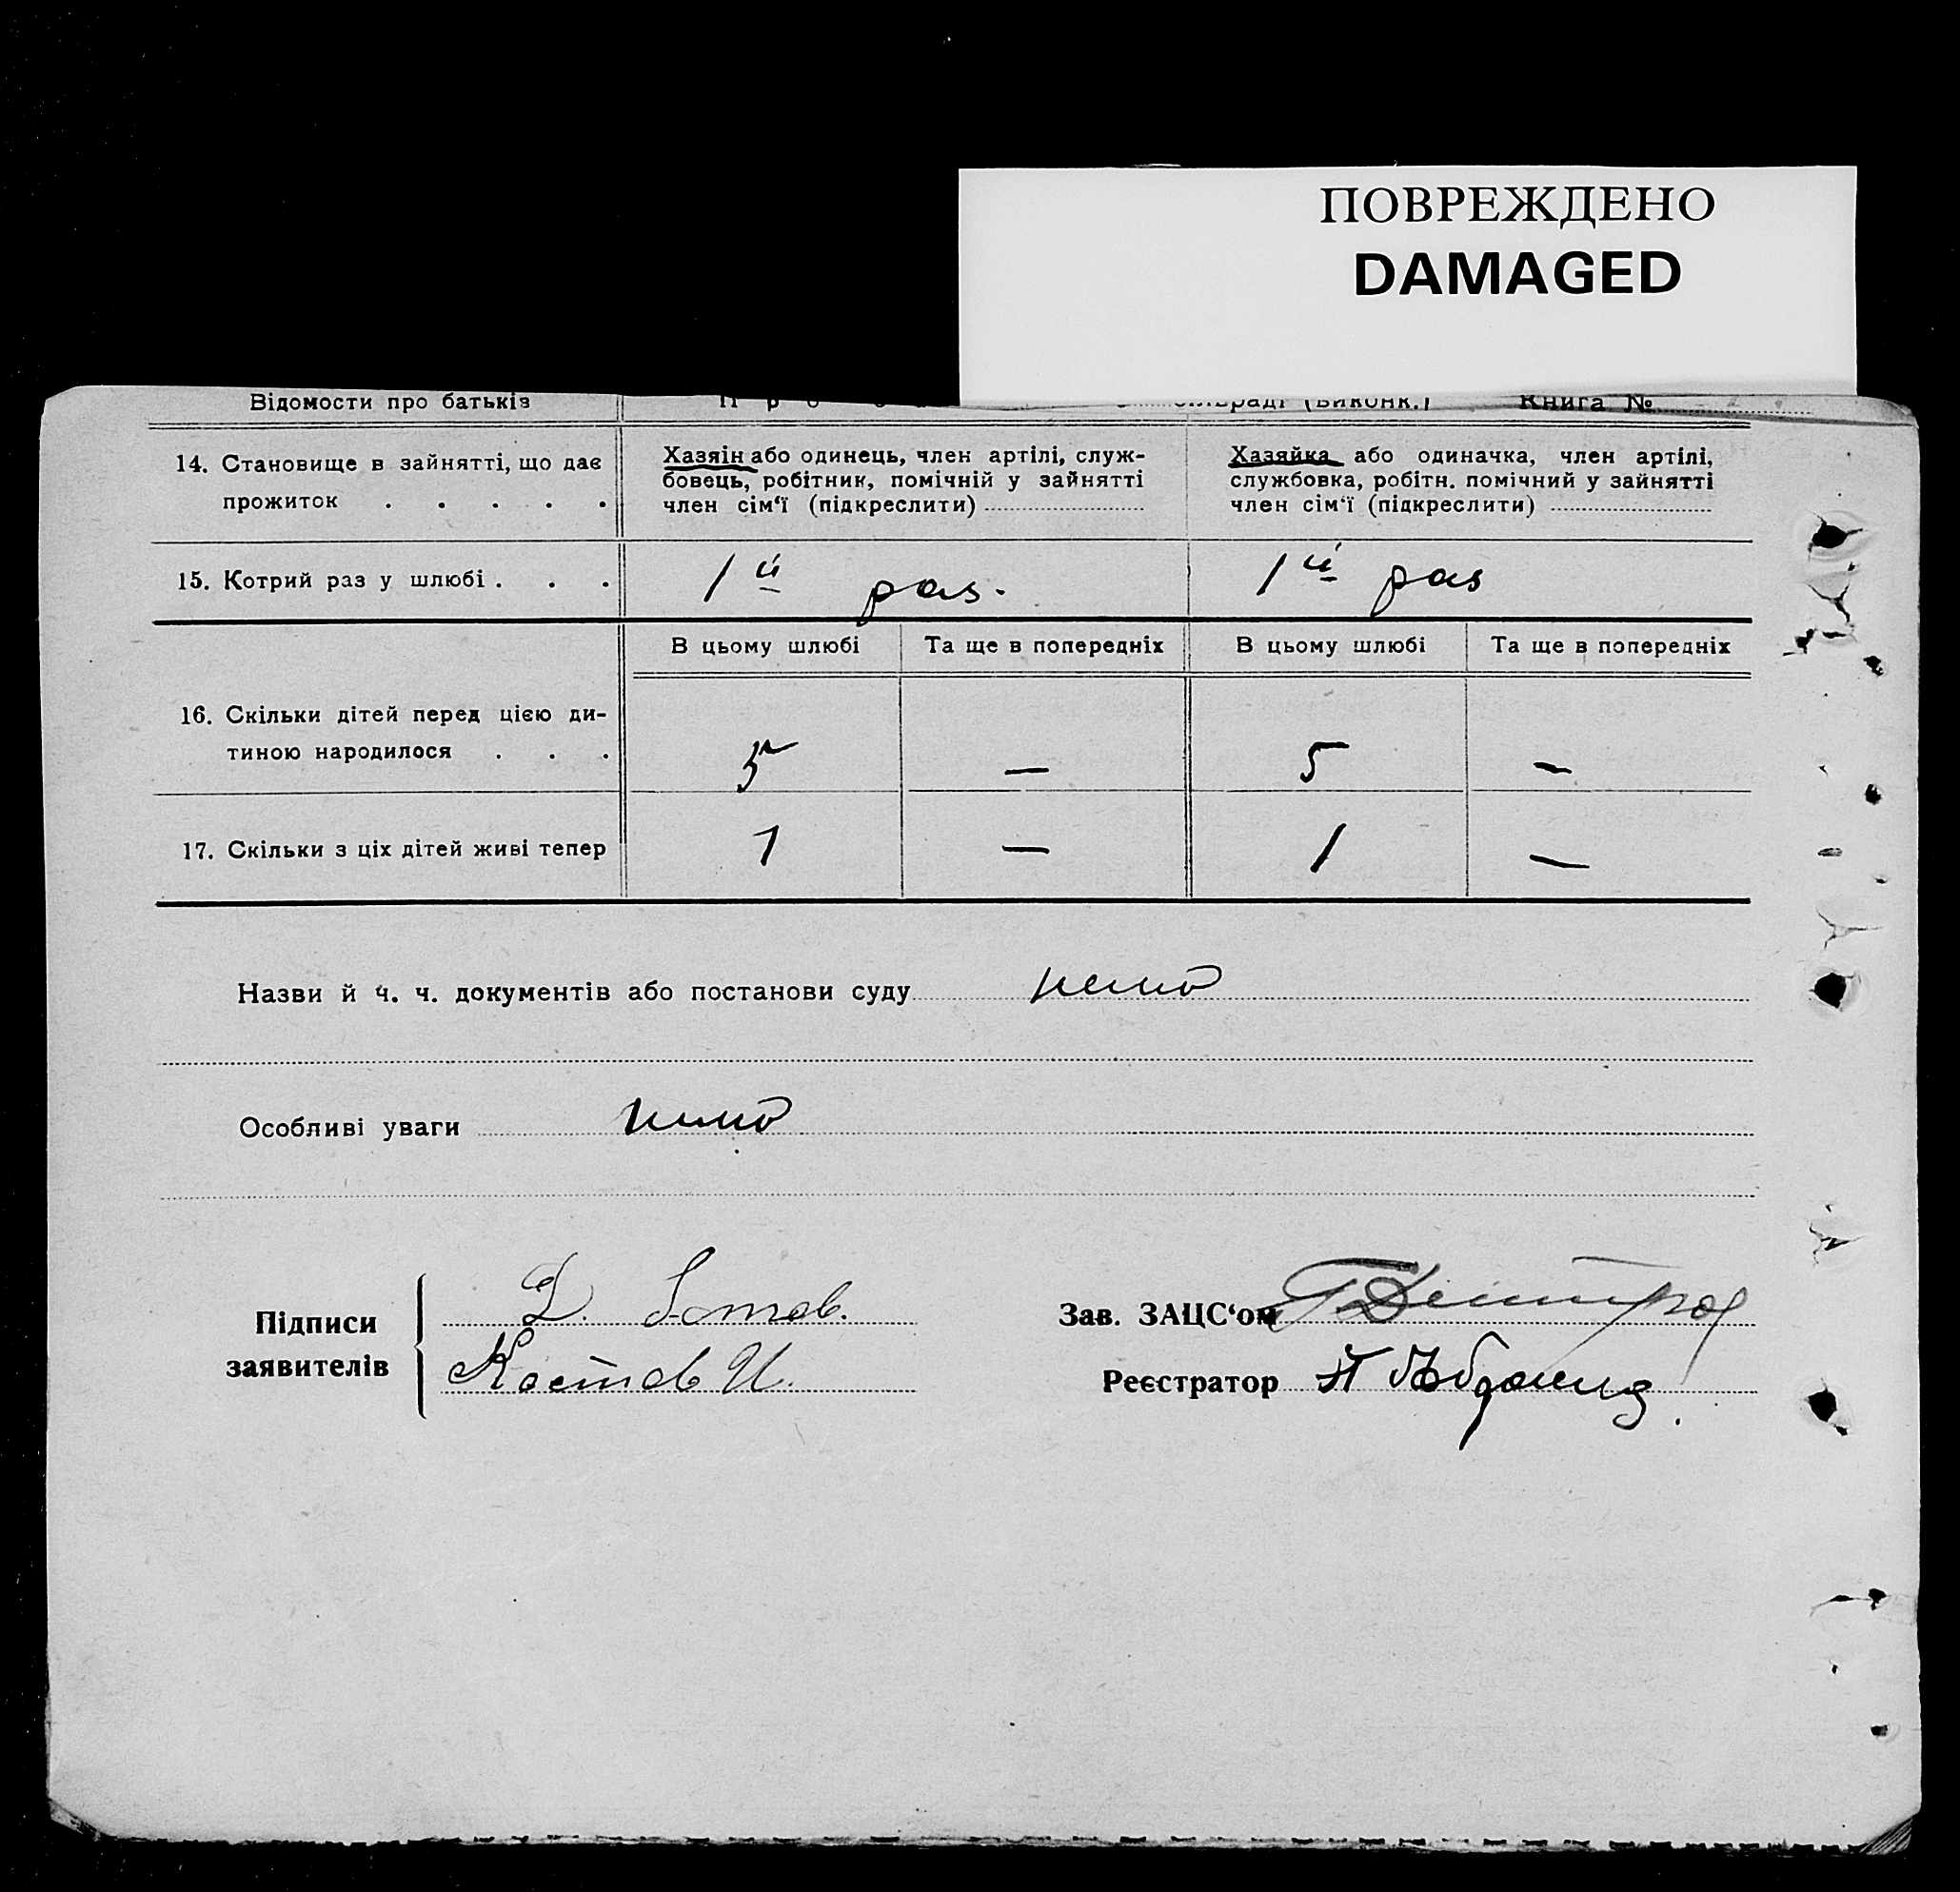 ПОВРЕЖДЕНО
DAMAGED
Відомости про батьків
(виконк.) Книга №
14. Становище в зайнятті, що дає
прожиток . . . . .
Хазяін або одинець, член артілі, служ-
бовець, робітник, помічній у зайнятті
член сім‘ї (підкреслити)
Хазяйка або одиначка, член артілі,
службовка, робітн. помічний у зайнятті
член сім‘ї (підкреслити)
15. Котрий раз у шлюбі . . . 1й раз. 1й раз
В цьому шлюбі Та ще в попередніх В цьому шлюбі Та ще в попередніх
16. Скільки дітей перед цією ди-
тиною народилося . . . 5 — 5 —
17. Скільки з ціх дітей живі тепер 1 — 1 —
Назви й ч. ч. документів або постанови суду нема
Особливі уваги нема
Підписи
заявителів
Д.
Костов И.
Зав. ЗАЦС‘ом
Реєстратор